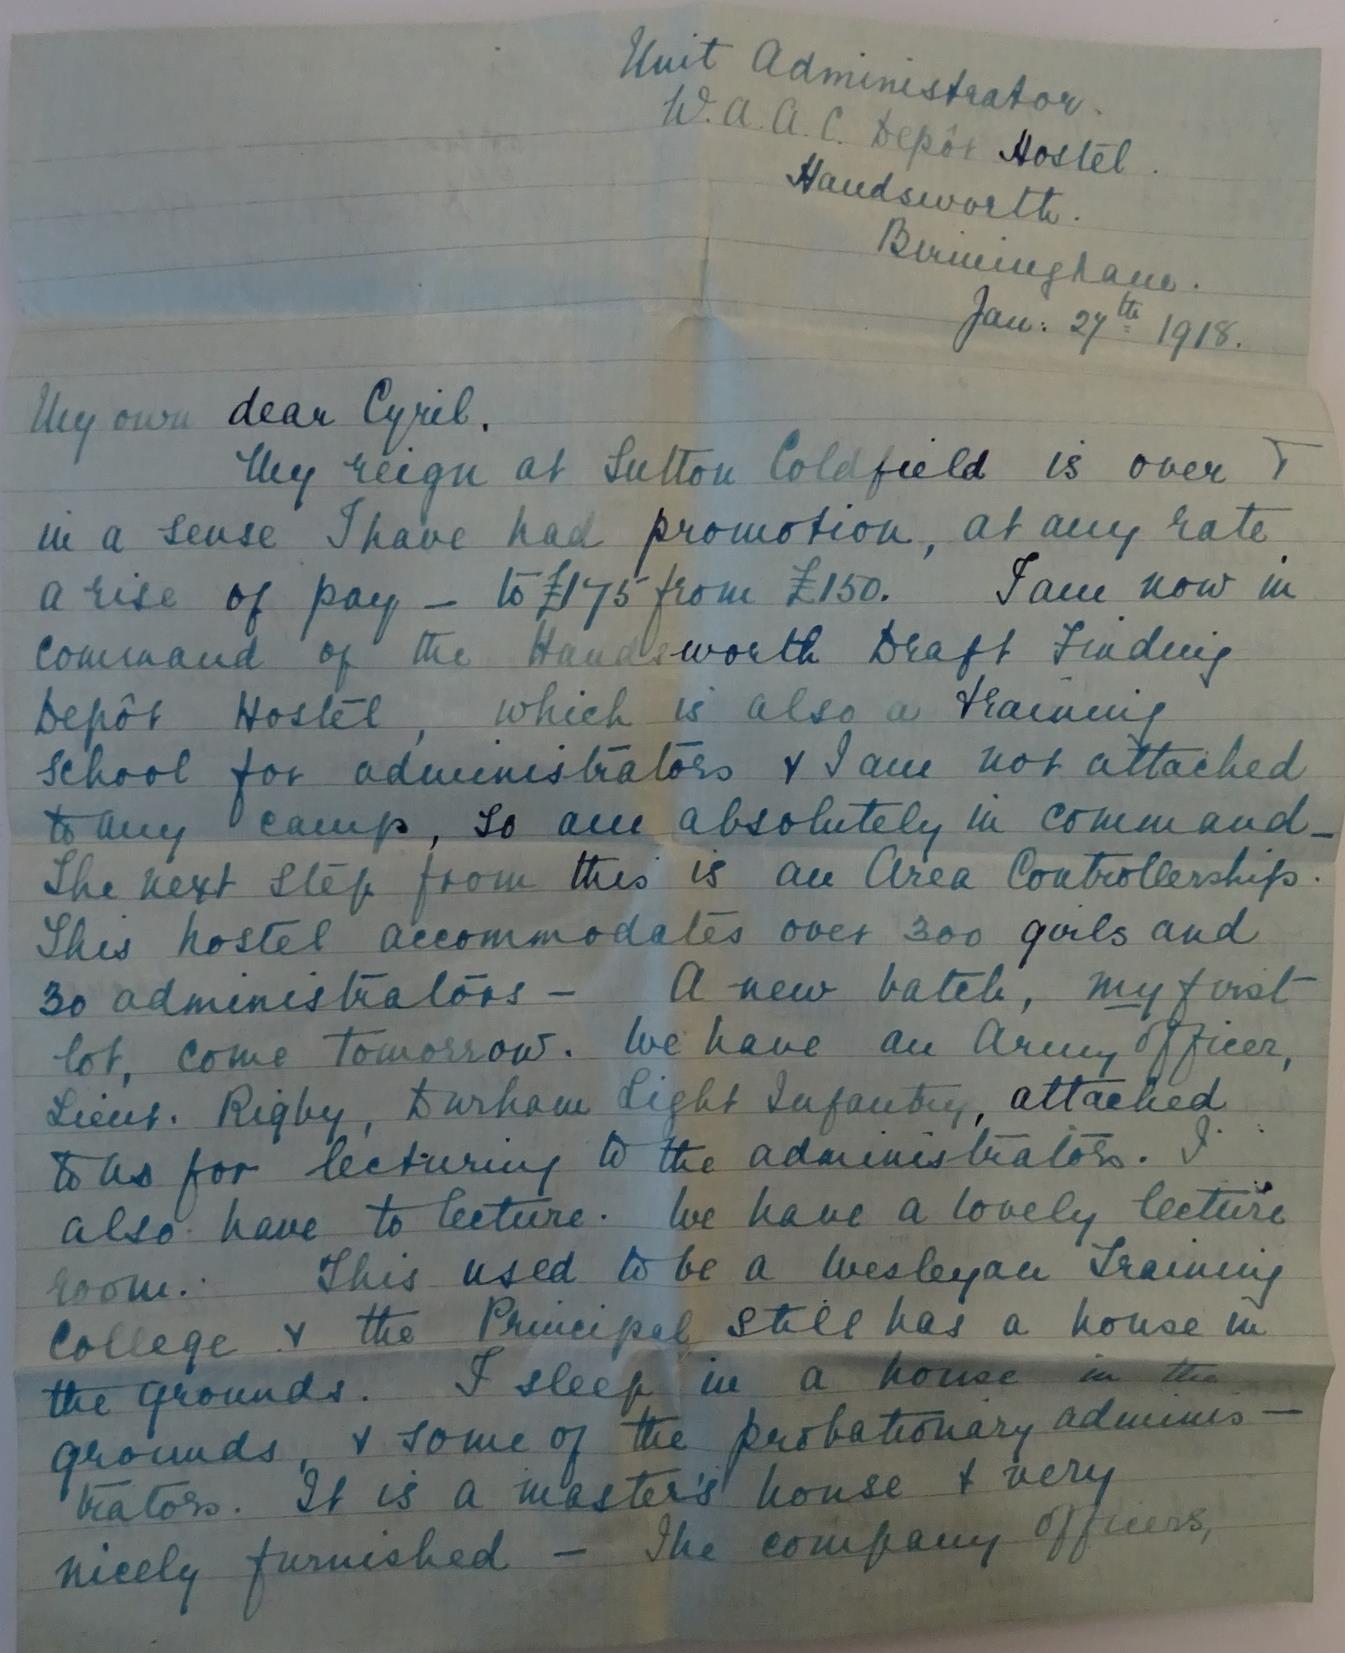 Unit Administrator.
W.A.A.C. Depôt Hostel.
Handsworth.
Birmingham.
Jan: 27th 1918.
My own dear Cyril,
My reign at Sutton Coldfield is over &
in a sense I have had promotion, at any rate
a rise of pay - to £175 from £150. I am now in
command of the Handsworth Draft Finding
Depôt Hostel, which is also a training
school for administrators & I am not attached
to any camp, so am absolutely in command -
The next step from this is an Area Controllership.
This hostel accommodates over 300 girls and
30 administrators - A new batch, my first
lot, come tomorrow. We have an Army officer,
Lieut. Rigby, Durham Light Infantry, attached
to us for lecturing to the administrators. I
also have to lecture. We have a lovely lecture
room. This used to be a Wesleyan Training
College & the Principal still has a house in
the grounds. I sleep in a house in the
grounds, & some of the probationary adminis-
trators. It is a master's house & very
nicely furnished - The company officers,